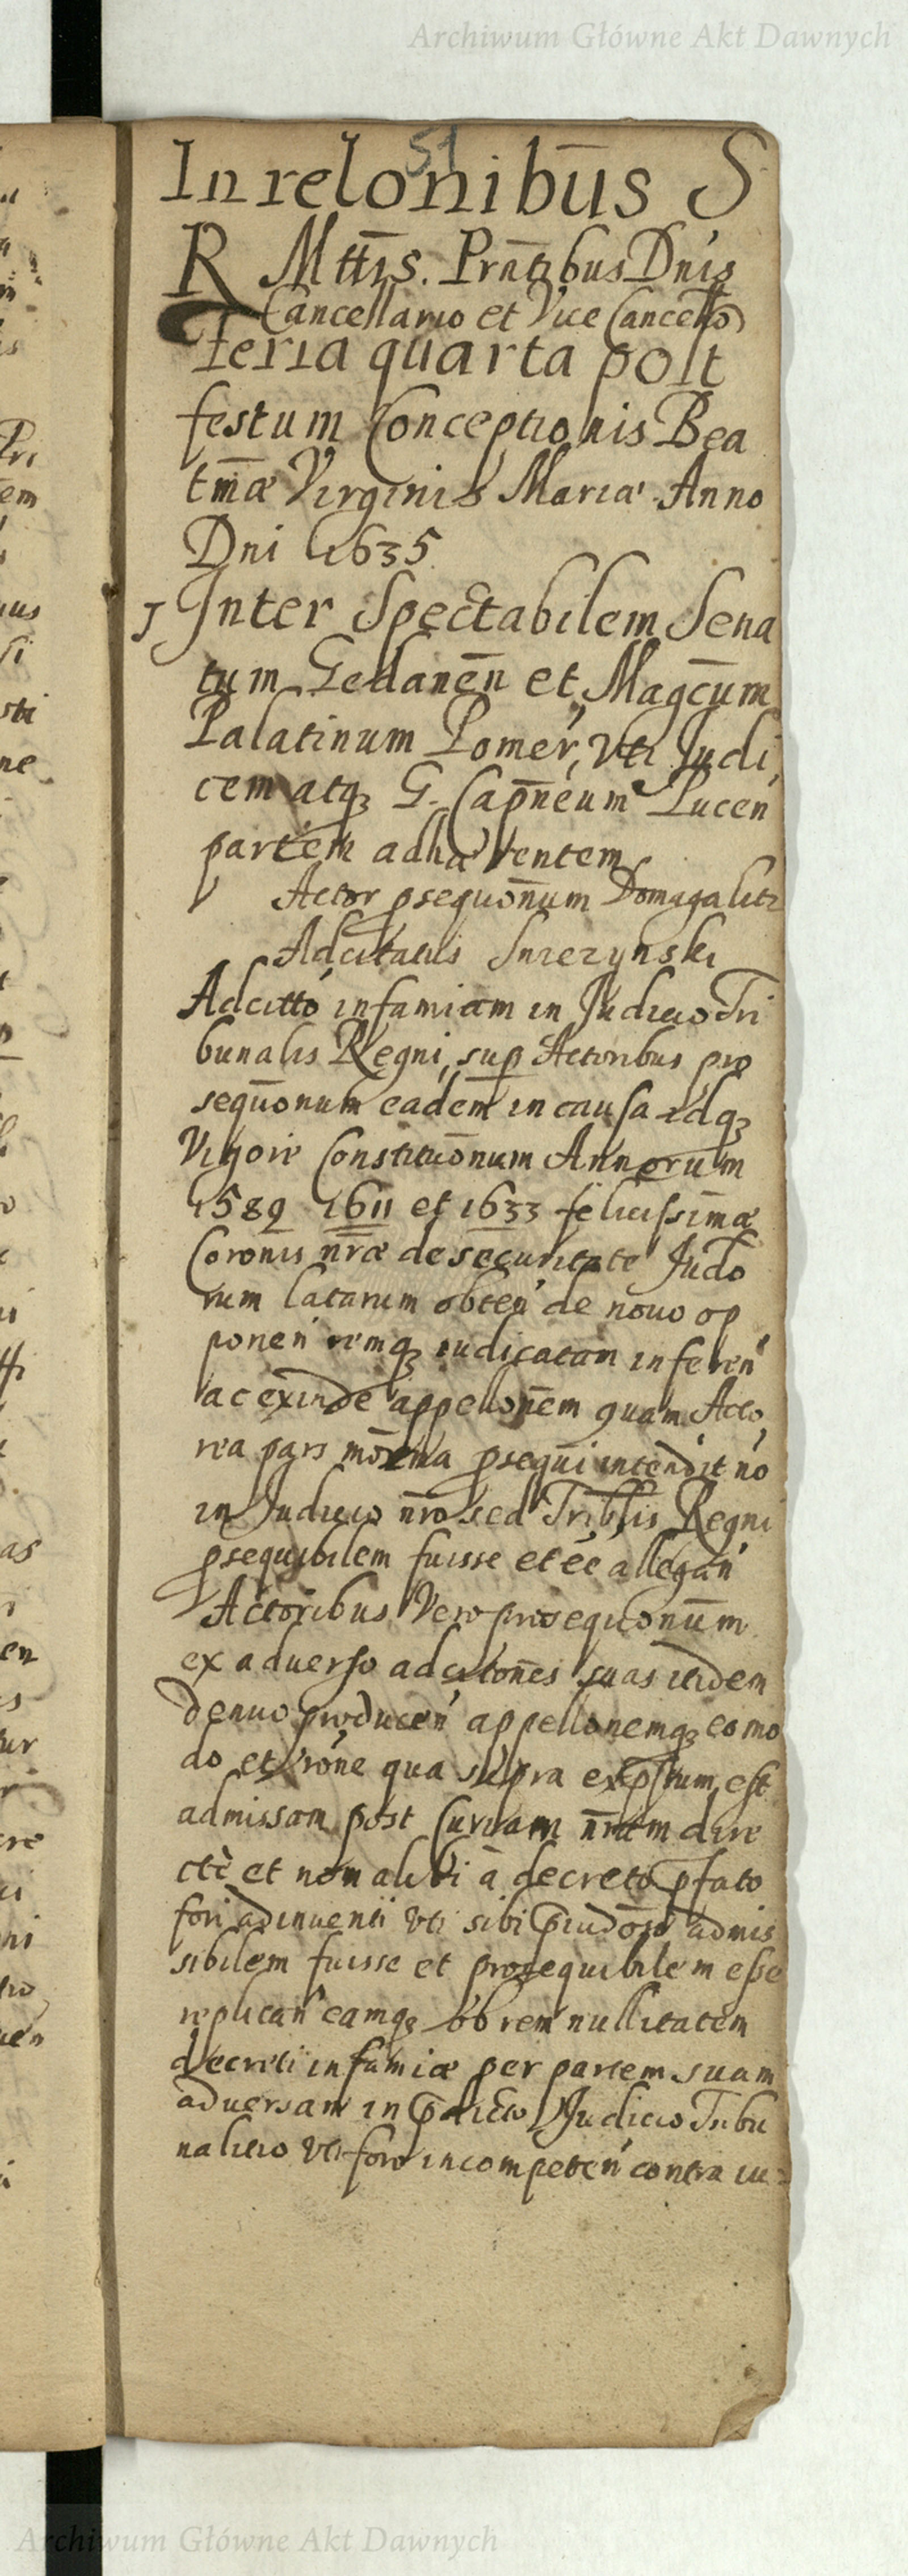 Archiwum Główne Akt Dawnych
51
In relonibus S
R Mttis. Prntibus Dnis
Cancellario et Vice Cancello
feria quarta post
festum Conceptionis Bea
tmæ Virginis Mariæ Anno
Dni 1635
1 Inter Spectabilem Sena
tum Gedanen et Magcum
Palatinum Pomer, Vti Judi,
cem atq3 G. Capneum Pucen
partem adhærentem
Actor psequonum Domagalitz
Adcitatus
Adcitto infamiam in Judicio Tri
bunalis Regni, sup Actoribus pro
sequonum eadem in causa idq3
Vigore Constituonum Annorum
1589 1611 et 1633 felicissimæ
Coronis nræ de securitate Judo
rum latarum obten de novo op
ponen remq3 iudicatam inferen
ac exinde appellonem quam Acto,
rea pars moderna psequi intendit no
in Judicio nro sed Triblis Regni
psequibilem fuisse et ee allegan
Actoribus Vero prosequonum
ex adverso adcitones suas itidem
denuo producen appellonemq3 eo mo
do et rone qua supra expssum est
admissam post Curiam nram dire
ctè et non alibi à decreto pfato
fori adinuenti vti sibi admis
sibilem fuisse et prosequibilem esse
replican eamq3 ob rem nullitatem
decreti infamiæ per partem suam
adversam in pdicto Judicio Tribu
nalitio vti foro incompeten contra iu=
Archiwum Główne Akt Dawnych